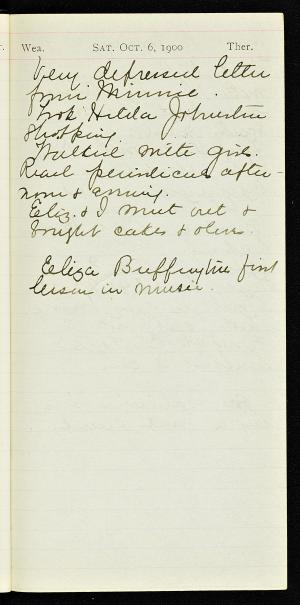 Wea. SAT. OCT. 6, 1900 Ther.
Very depressed letter
from Minnie.
Took Hilda Johnston
shopping.
Walked with girls.
Read periodicals after-
noon & evening.
Eliz. & I went out &
bought cakes & olives.
Eliza Buffington first
lesson in music.